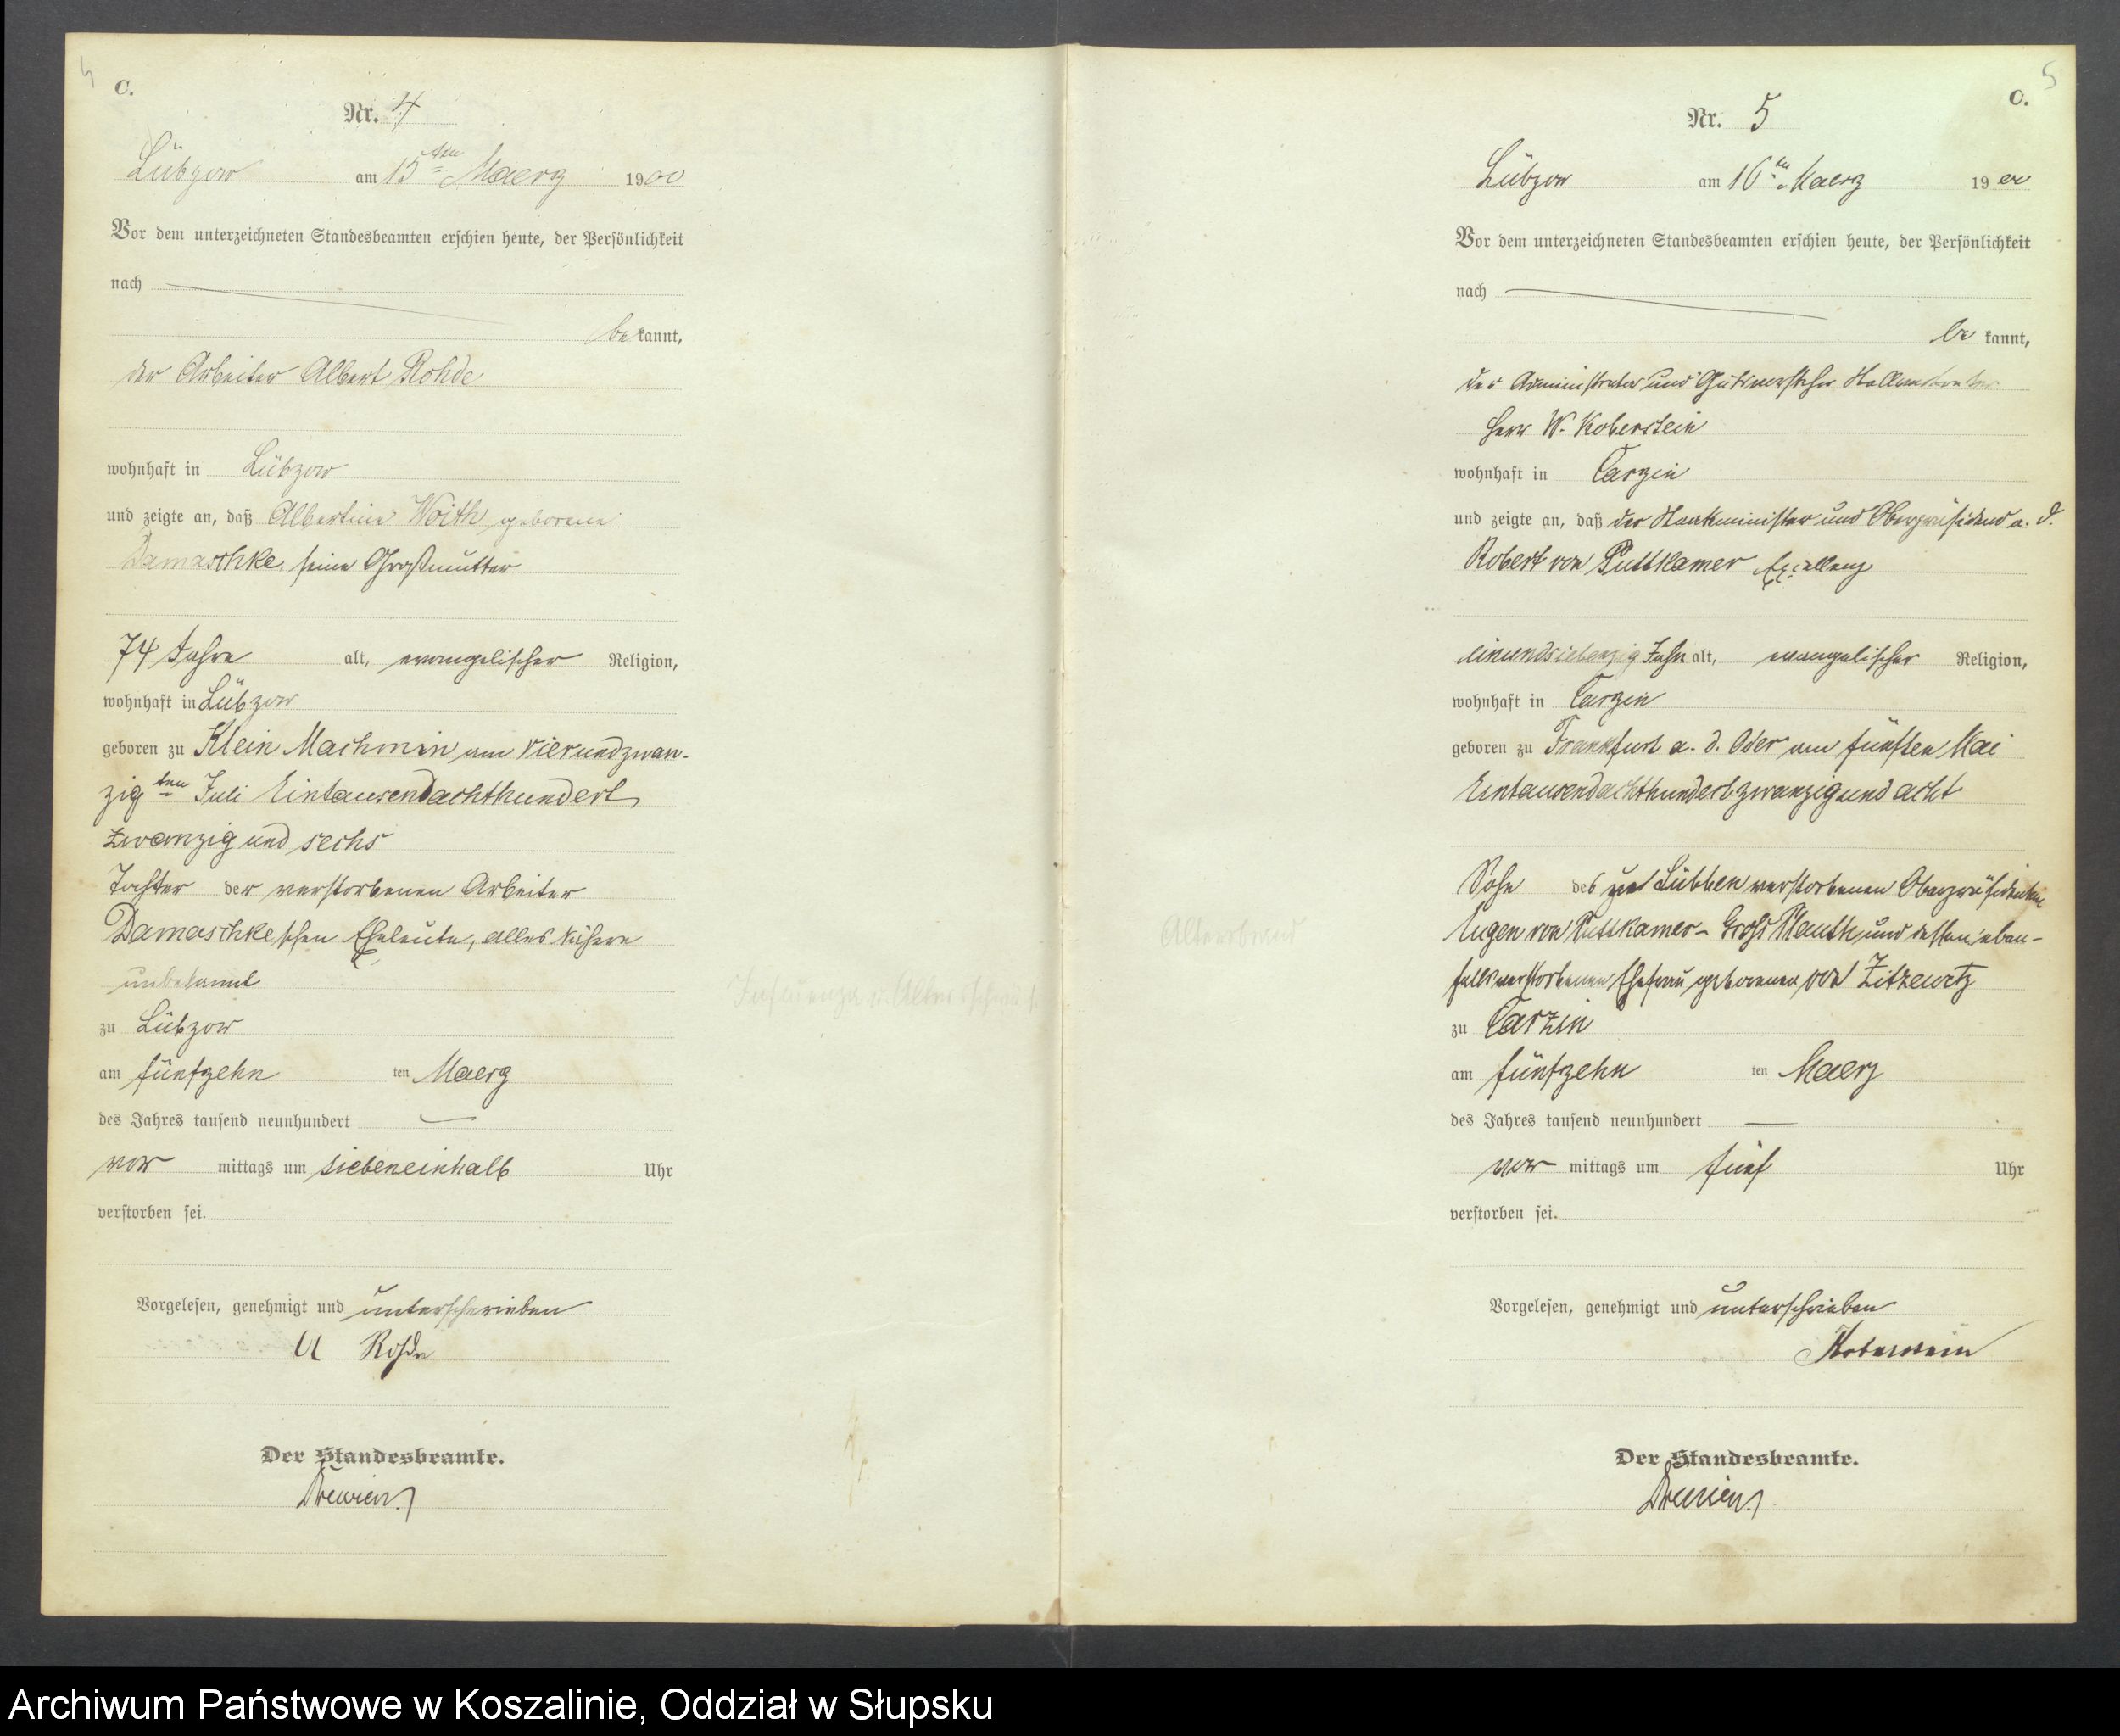 4
C.
Nr. 4
Lübzow am 15ten Maerz 1900
Vor dem unterzeichneten Standesbeamten erschien heute, der Persönlichkeit
nach
be kannt,
der Arbeiter Albert Rohde
wohnhaft in Lübzow
und zeigte an, daß Albertine Woith geborene
Damaschke, seine Großmutter
74 Jahre alt, evangelischer Religion,
wohnhaft in Lübzow
geboren zu Klein Machmin am vierundzwan-
zigten Juli Eintausendachthundert
zwanzig und sechs
Tochter der verstorbenen Arbeiter
Damaschkeschen Eheleute, alles Nähere
unbekannt
zu Lübzow
am fünfzehn ten Maerz
des Jahres tausend neunhundert
vor mittags um siebeneinhalb Uhr
verstorben sei.
Vorgelesen, genehmigt und unterschrieben
A Rohde
Der Standesbeamte.
Drewien
Influenza u. Altersschwäche
Altersbrand
5
C.
Nr. 5
Lübzow am 16ten Maerz 1900
Vor dem unterzeichneten Standesbeamten erschien heute, der Persönlichkeit
nach
be kannt,
der Administrator und Gutsvorsteher Stellvertreter
Herr W. Koberstein
wohnhaft in Carzin
und zeigte an, daß der Staatsminister und Oberpräsident a. D.
Robert von Puttkamer Excellenz
einundsiebenzig Jahr alt, evangelischer Religion,
wohnhaft in Carzin
geboren zu Frankfurt a. d. Oder am fünften Mai
Eintausendachthundertzwanzigundacht
Sohn des zu Lübben verstorbenen Oberpräsidenten
Eugen von Puttkamer - Groß Plauth und dessen eben-
falls verstorbenen Ehefrau geborenen von Zitzewitz
zu Carzin
am fünfzehn ten Maerz
des Jahres tausend neunhundert
vor mittags um fünf Uhr
verstorben sei.
Vorgelesen, genehmigt und unterschrieben
Koberstein
Der Standesbeamte.
Drewien
Archiwum Państwowe w Koszalinie, Oddział w Słupsku